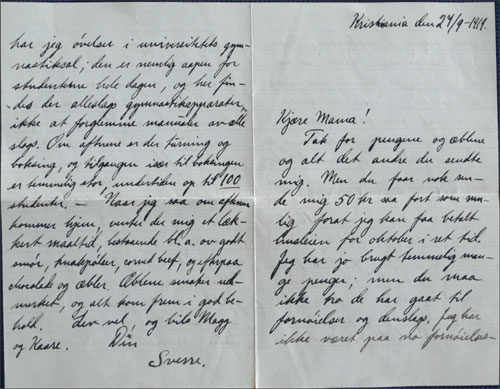 Kristiania den 27/9-1919.
Kjære Mama!
Tak for pengene og æblene
og alt det andre du sendte
mig. Men du faar nok sen-
de mig 50 kr saa fort som mu-
lig forat jeg kan faa betalt
husleien for oktober i ret tid.
Jeg har jo brugt temmelig man-
ge penger; men du maa
ikke tro de har gaat til
fornøielser og denslags. Jeg har
ikke været paa no fornøielses-
har jeg øvelser i universitetets gym-
nastiksal; den er nemlig aapen for
studenterne hele dagen, og her fin-
des der alleslags gymnastikapparater,
ikke at forglemme manualer av alle
slags. Om aftnene er der turning og
boksing, og tilgangen især til boksingen
er temmelig stor, undertiden op til 100
studenter. - Naar jeg saa om aftnen
kommer hjem, venter der mig et læk-
kert maaltid, bestaaende bl.a. av godt
smør, knakpølser, corned beef, og
chocolade og æbler. Æblene smaker ud-
merket, og alt kom frem i god be-
hold. Lev vel, og hils Magg
og Kaare. Din
Sverre.